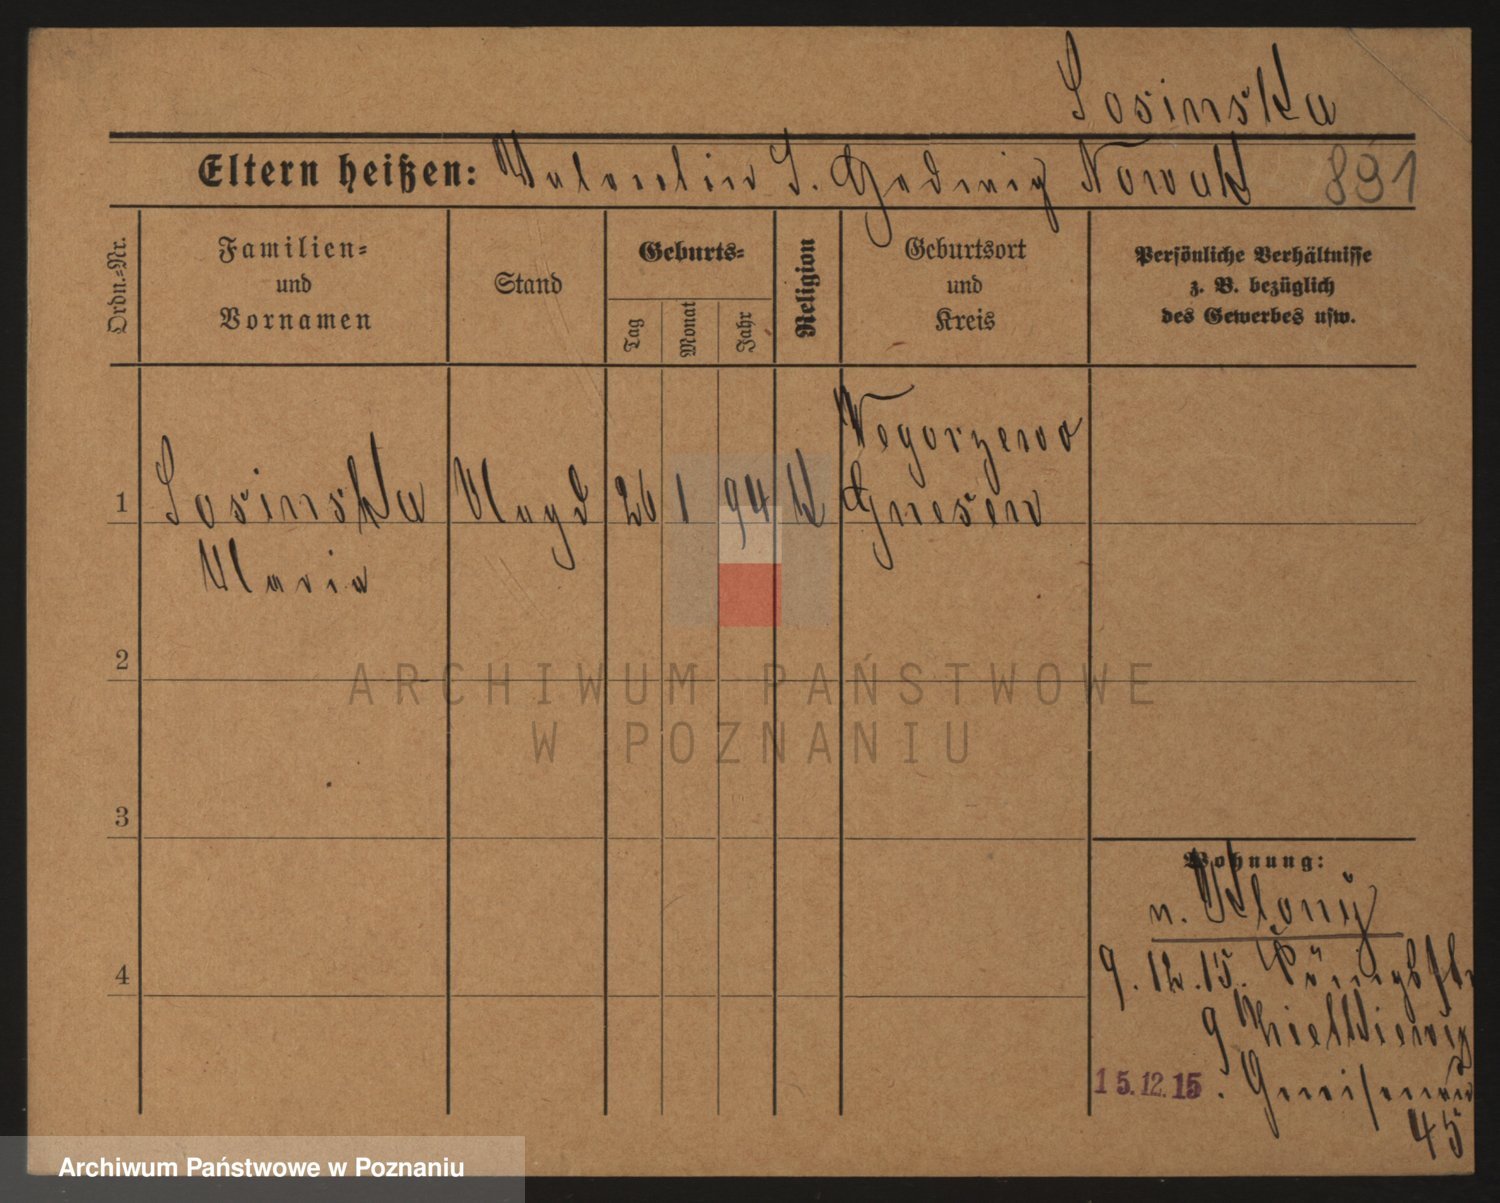 Sosinska
Eltern heißen: Valentin S. Hedwig Nowak 891
Ordn.-Nr.
Familien- und Vornamen
Stand
Geburts-
Tag
Monat
Jahr
Religion
Geburtsort und Kreis
Persönliche Verhältnisse
z. B. bezüglich
des Gewerbes usw.
1 Sosinska Magd 26 1 94 k Wegorzewo
Gnesen
Maria
2
3
4
Wohnung:
n.
9.12.15. Königsstr
9
15.12.15. Gneisenau
45
ARCHIWUM PAŃSTWOWE
W POZNANIU
Archiwum Państwowe w Poznaniu